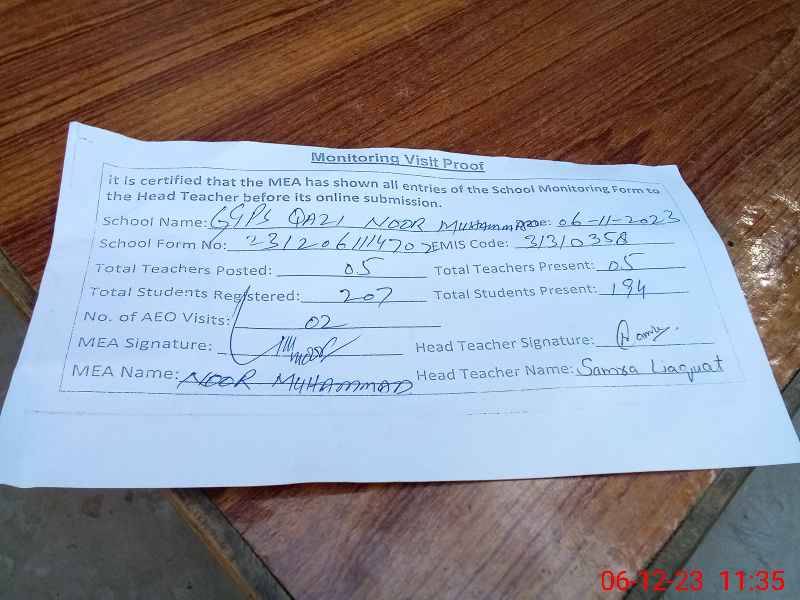 Monitoring Visit Proof
it is certified that the MEA has shown all entries of the School Monitoring Form to
the Head Teacher before its online submission.
School Name: GGPS QAZI NOOR MUHAMMAD e: 06-11-2023
School Form No: EMIS Code: 31310358
Total Teachers Posted: 05 Total Teachers Present: 05
Total Students Registered: 207 Total Students Present: 194
No. of AEO Visits: 02
MEA Signature: Head Teacher Signature:
MEA Name: NOOR MUHAMMAD Head Teacher Name: Samsa Liaquat
06-12-23 11:35